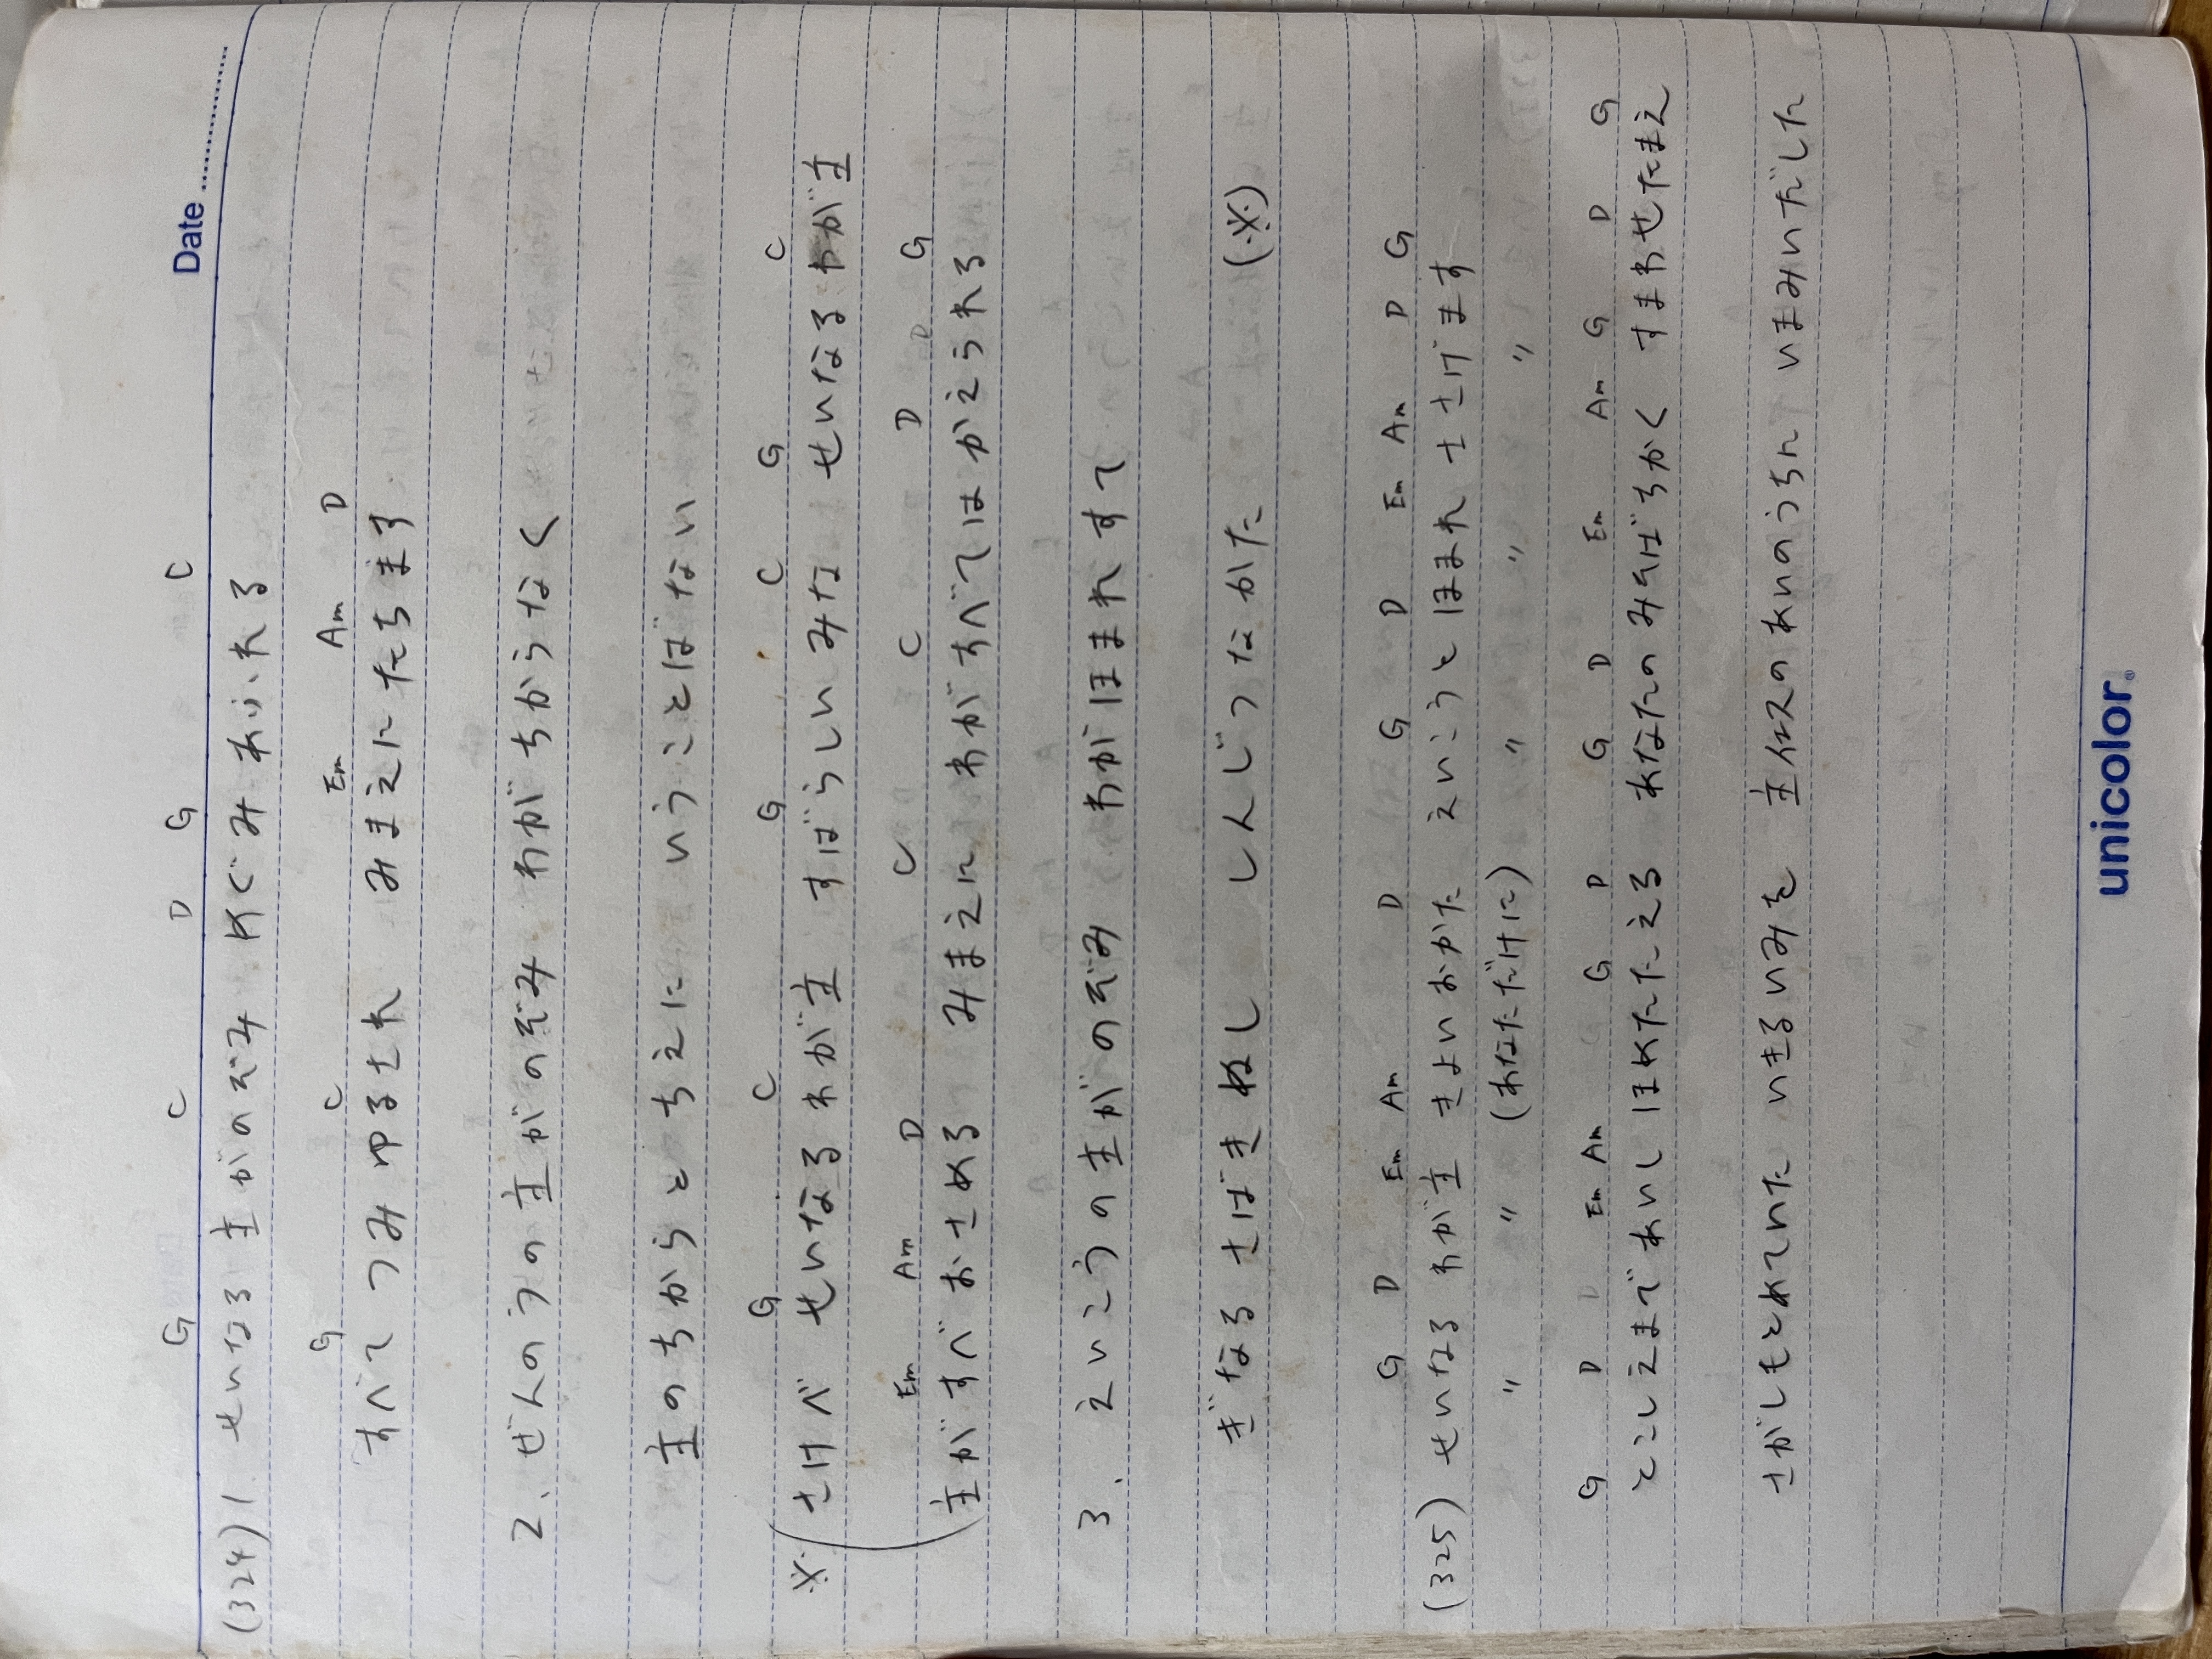 Date
G C D G C
(324) 1. せいなる主がのぞみ めぐみあふれる
G C Em Am D
すべてつみゆるされ みまえにたちます
2. ぜんのうの主がのぞみ わがちからなく
主のちからとちえに いうことばない
G C G C G C
※ さけべ せいなるわが主 すばらしいみな せいなるわが主
Em Am D C C D D G
主がすべおさめる みまえに わがすべてはかえられる
3. えいこうの主がのぞみ わがほまれすて
ぎなるさばきぬし しんじつなかた (※)
G D Em Am D G D Em Am D G
(325) せいなる わが主 きよいおかた えいこうと ほまれ ささげます
〃 〃 (あなただけに) 〃 〃 〃
G D D Em Am G D G D Em Am G D G
とこしえまであいし ほめたたえる あなたのみそばちかく すまわせたまえ
さがしもとめていた いきるいみを 主イエスのあいのうちに いまみいだした
unicolor®